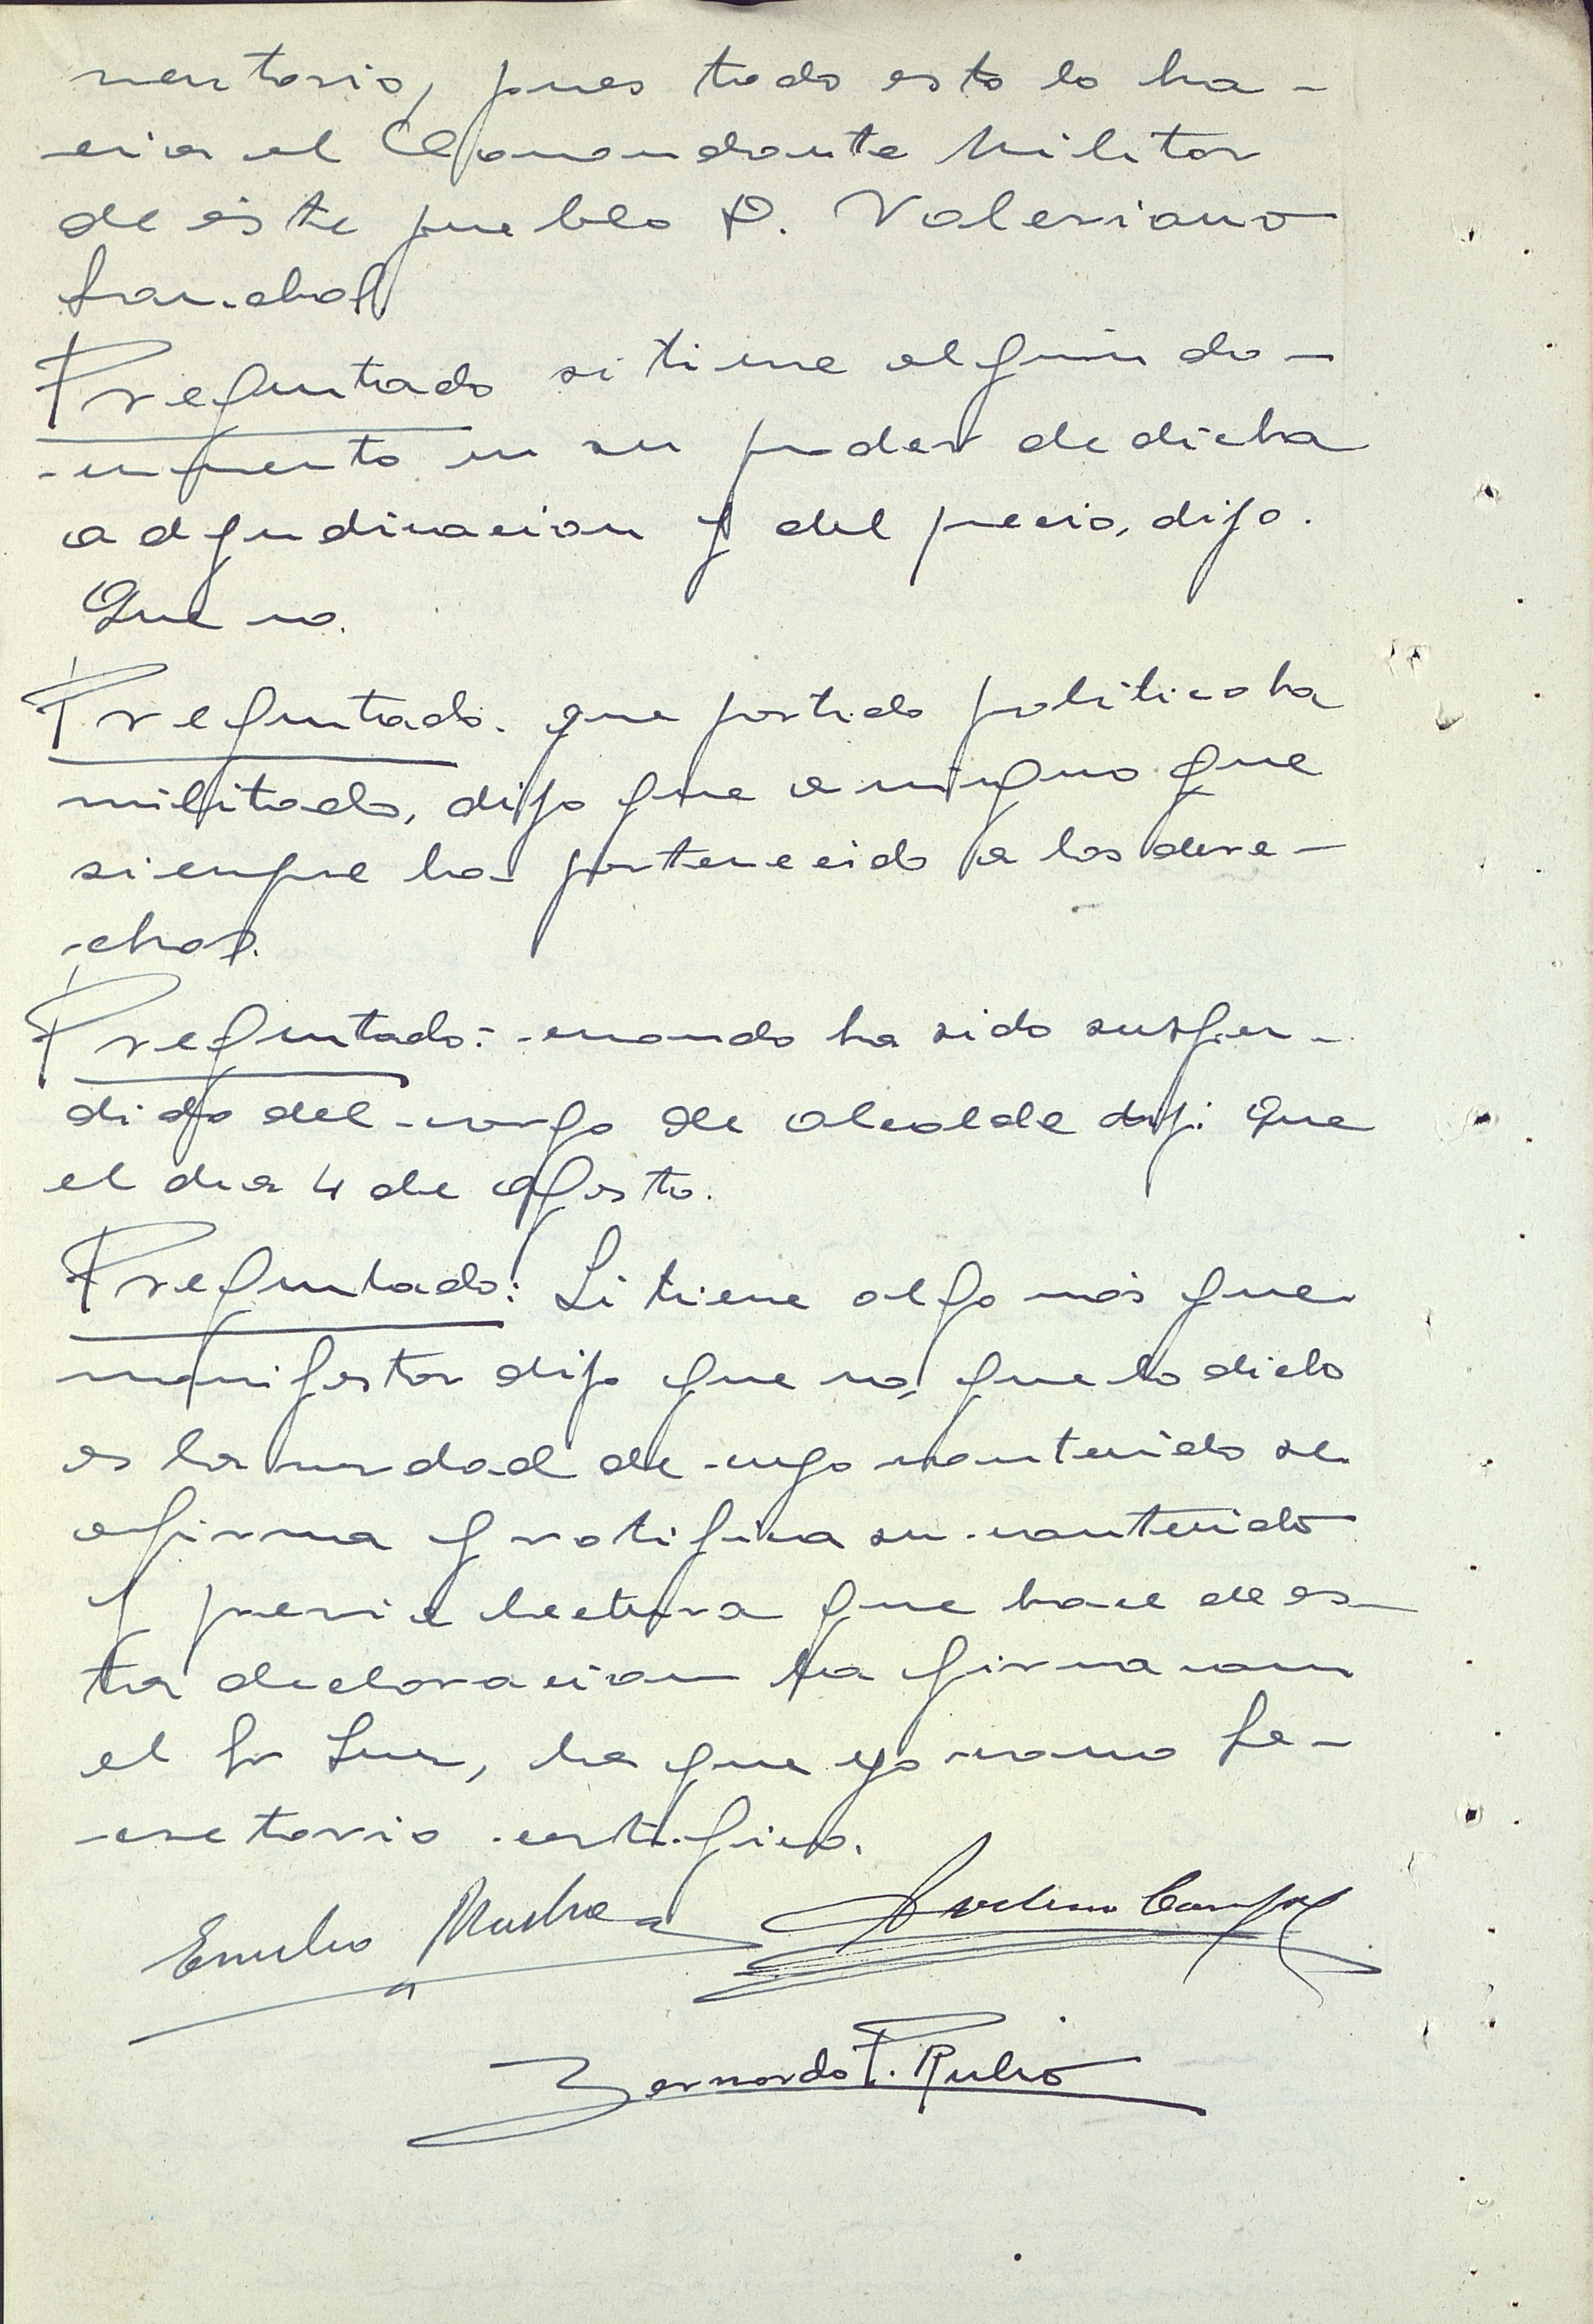 ventario, pues todo esto lo ha-
cia el Comandante Militar
de este pueblo D. Valeriano
Sanchez
Preguntado si tiene algún do-
cumento en su poder de dicha
adjudicacion y del precio, dijo.
Que no.
Preguntado. que partido politico ha
militado, dijo que a ninguno que
siempre ha pertenecido a las dere-
chas.
Preguntado:- cuando ha sido suspen-
dido del cargo de alcalde dijo: Que
el dia 4 de Agosto.
Preguntado: Si tiene algo más que
manifestar dijo que no, que lo dicho
es la verdad de cuyo contenido se
afirma y ratifica su contenido
y previa lectura que hace de es-
ta declaracion la firma con
el Sr Juez, de que yo como Se-
cretario certifico.
Emilio
Avelino Campos
Bernardo P. Rubio